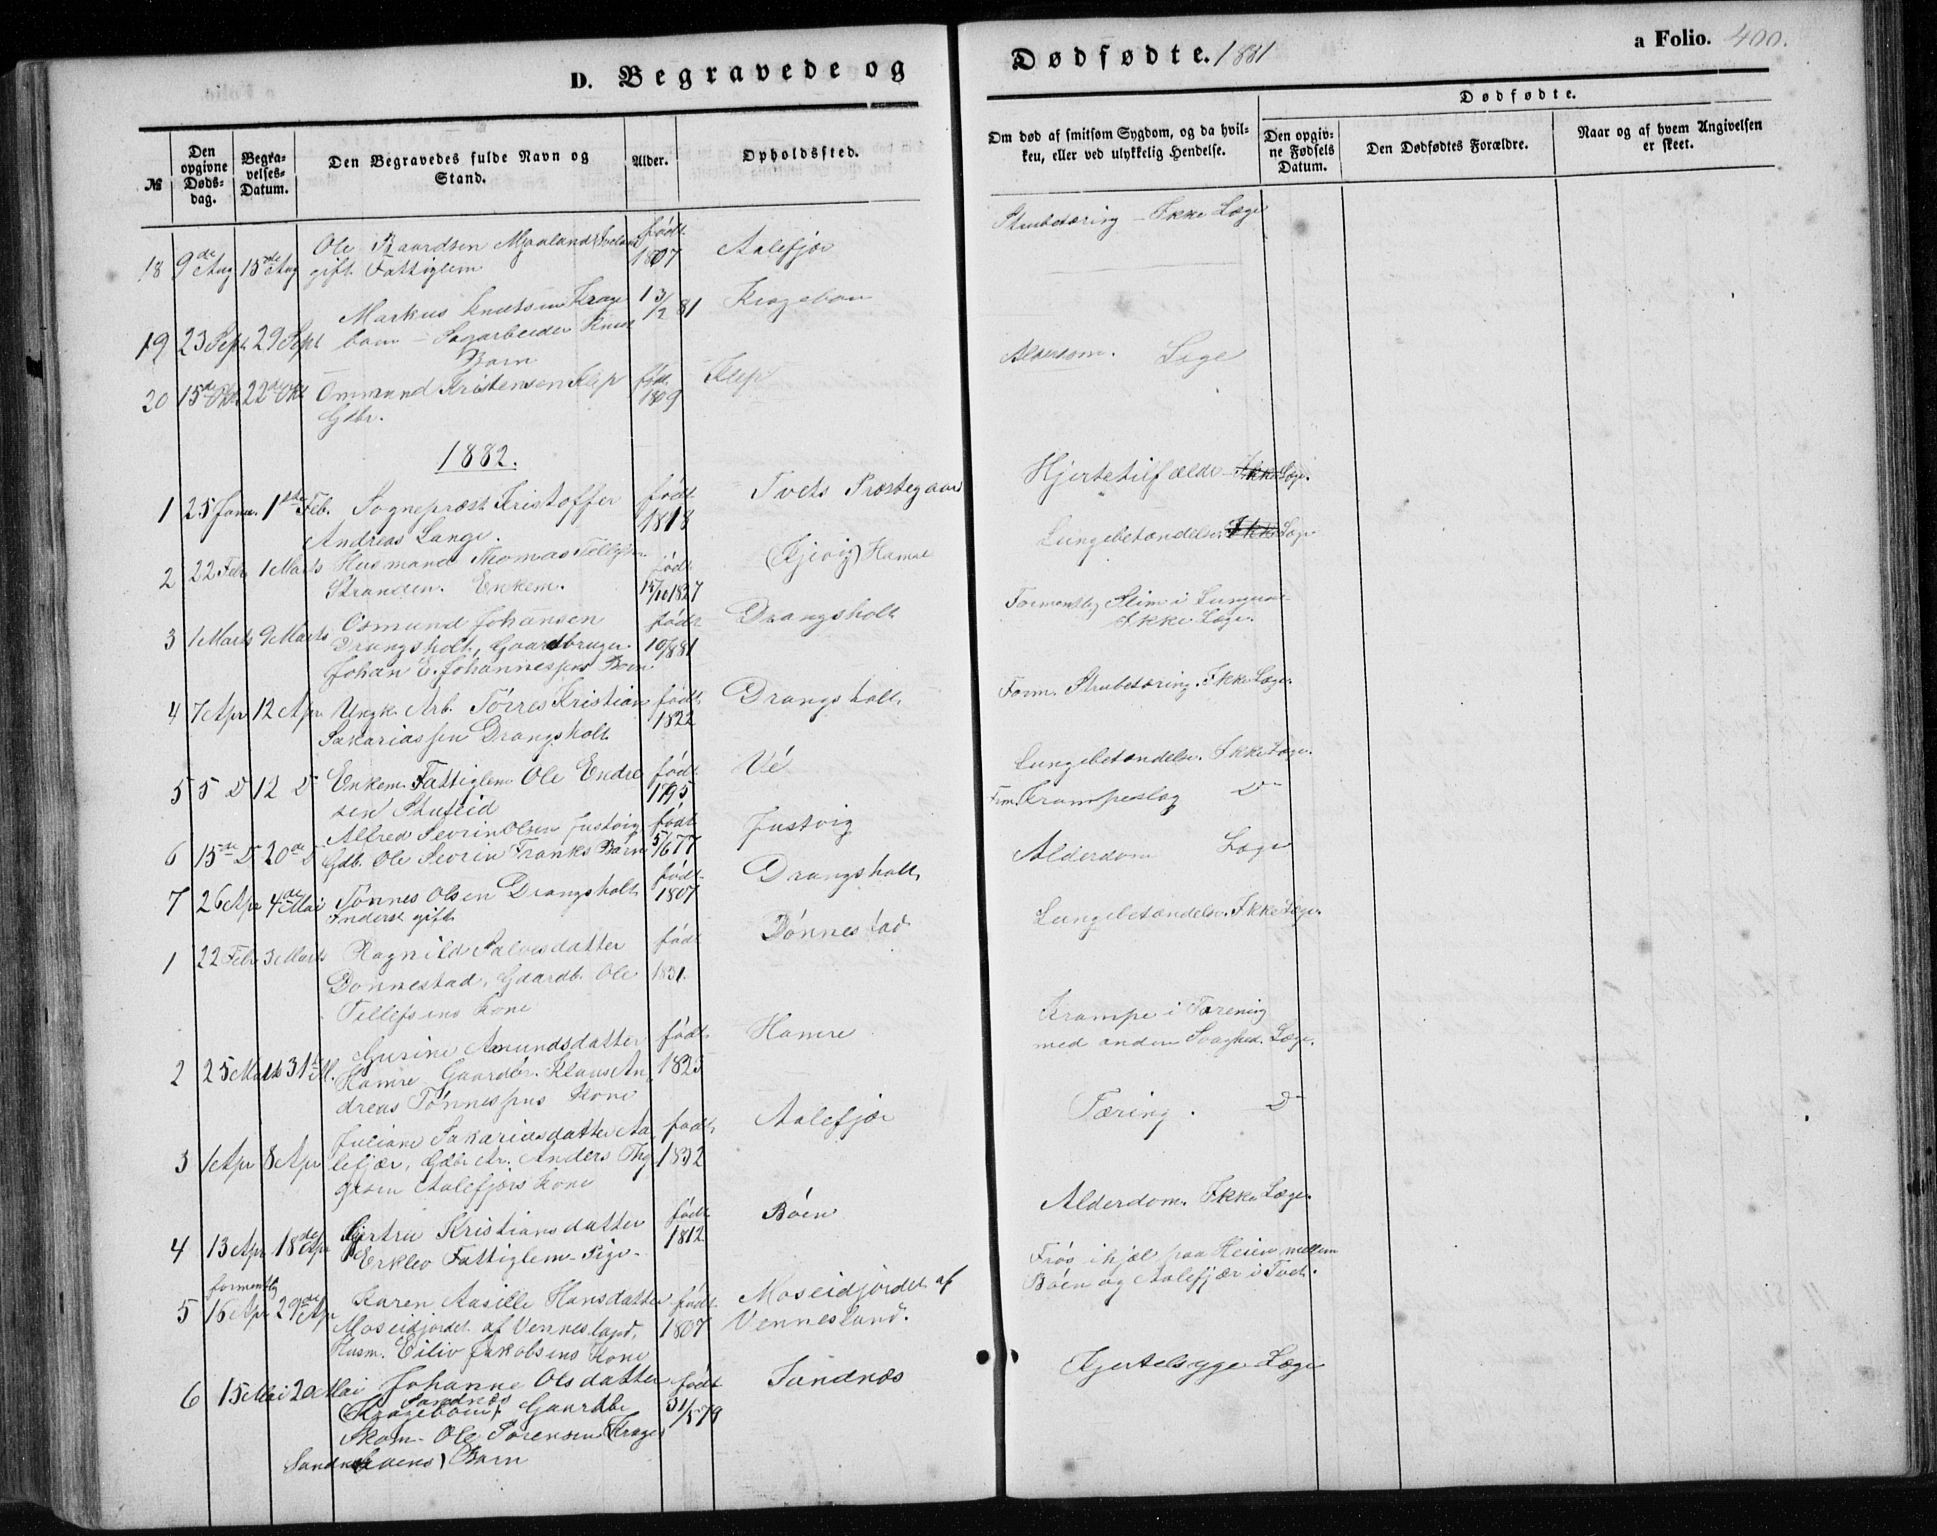 D. Begravede og
Dødfødte. 1881
a Folio. 400.
№
Den opgivne Døds-dag.
Begra-velses-Datum.
Den Begravedes fulde Navn og Stand.
Alder.
Opholdssted.
Om død af smitsom Sygdom, og da hvil-ken, eller ved ulykkelig Hendelse.
Dødfødte.
Den opgiv-ne Fødsels Datum.
Den Dødfødtes Forældre.
Naar og af hvem Angivelsen er skeet.
18 9de Aug 15de Aug Ole Baardsen Mjaaland født Aalefjær Strubetæring - Ikke Læge
gift Fattiglem 1807
19 23 Sept 29 Sept Markus Knutsen Krage 13/2 81 Krageboen
boen - Sagarbeider Knut
Barn
20 15de Okt 22de Okt Ommund Kristensen Klep fød. Klep Alderdom. Læge
Gdbr. 1809
1882.
1 25 Janr. 1ste Feb. Sogneprest Kristoffer født Tveits Præstegaard Hjertetilfælde Ikke Læge.
Andreas Lange. 1818
2 22 Febr 1 Marts Husmand Thomas Tellefsen født (Kjevig) Hamre Lungebetændelse Ikke Læge
Stranden. Enkem. 1827
3 1 Marts 9 Marts Osmund Johansen født Drangsholt Formentlig Slim i Lungerne
Drangsholt, Gaardbruger 10/8 81 Ikke Læge.
Johan E. Johannessens Barn
4 7 Apr 12 Apr Ungk. Arb. Tørres Kristian født Drangsholt. Form. Strubetæring. Ikke Læge.
Sakariassen Drangsholt 1822
5 5 D 12 D Enkem. Fattiglem Ole Endre født Vé Lungebetændelse. Ikke Læge.
sen Stuleid 1795
6 15de D 20de D Alfred Severin Olsen Justvig født Justvig Frm. Krampeslag D
Gdb. Ole Severin Franks Barn 5/6 77
7 26 Apr 4de Mai Tønnes Olsen Drangsholt født Drangsholt. Alderdom Læge
Inderst gift 1807
1 22 Febr 3 Marts Ragnild Salvesdatter født Dønnestad Lungebetændelse. Ikke Læge.
Dønnestad, Gaardb. Ole 1831.
Tellefsens Kone
2 25 Marts 31te M. Gurine Amundsdatter født Hamre Krampe i Forening
Hamre Gaardbr. Klaus An 1825 med anden Svaghed. Læge.
dreas Tønnessens Kone
3 1 Apr 8 Apr Juciane Sakariasdatter Aa født Aalefjær Tæring. D
lefjær, Gdbr Ar. Anders Thy 1832
gesen Aalefjærs Kone
4 13 Apr 18de Apr Gjertru Kristiansdatter født Bóen Alderdom. Ikke Læge.
Erklev Fattiglem Pige. 1812
5 formentlig 16 Apr 29de Apr Karen Aasille Hansdatter født Moseidjordet af Frøs ihjæl paa Heien mellem
Moseidjordet af Vennesland, 1807 Vennesland. Bóen og Aalefjær i Tveit.
Husm. Eiliv Jakobsens Kone
6 15 Mai 20 Mai Johanne Olsdatter født Sandnæs Kjertelsyge Læge
Sandnæs (Krageboen) Gaardbr 31/5 79
Skom. Ole Sørensen (Krage
Sandnæs boens) Barn